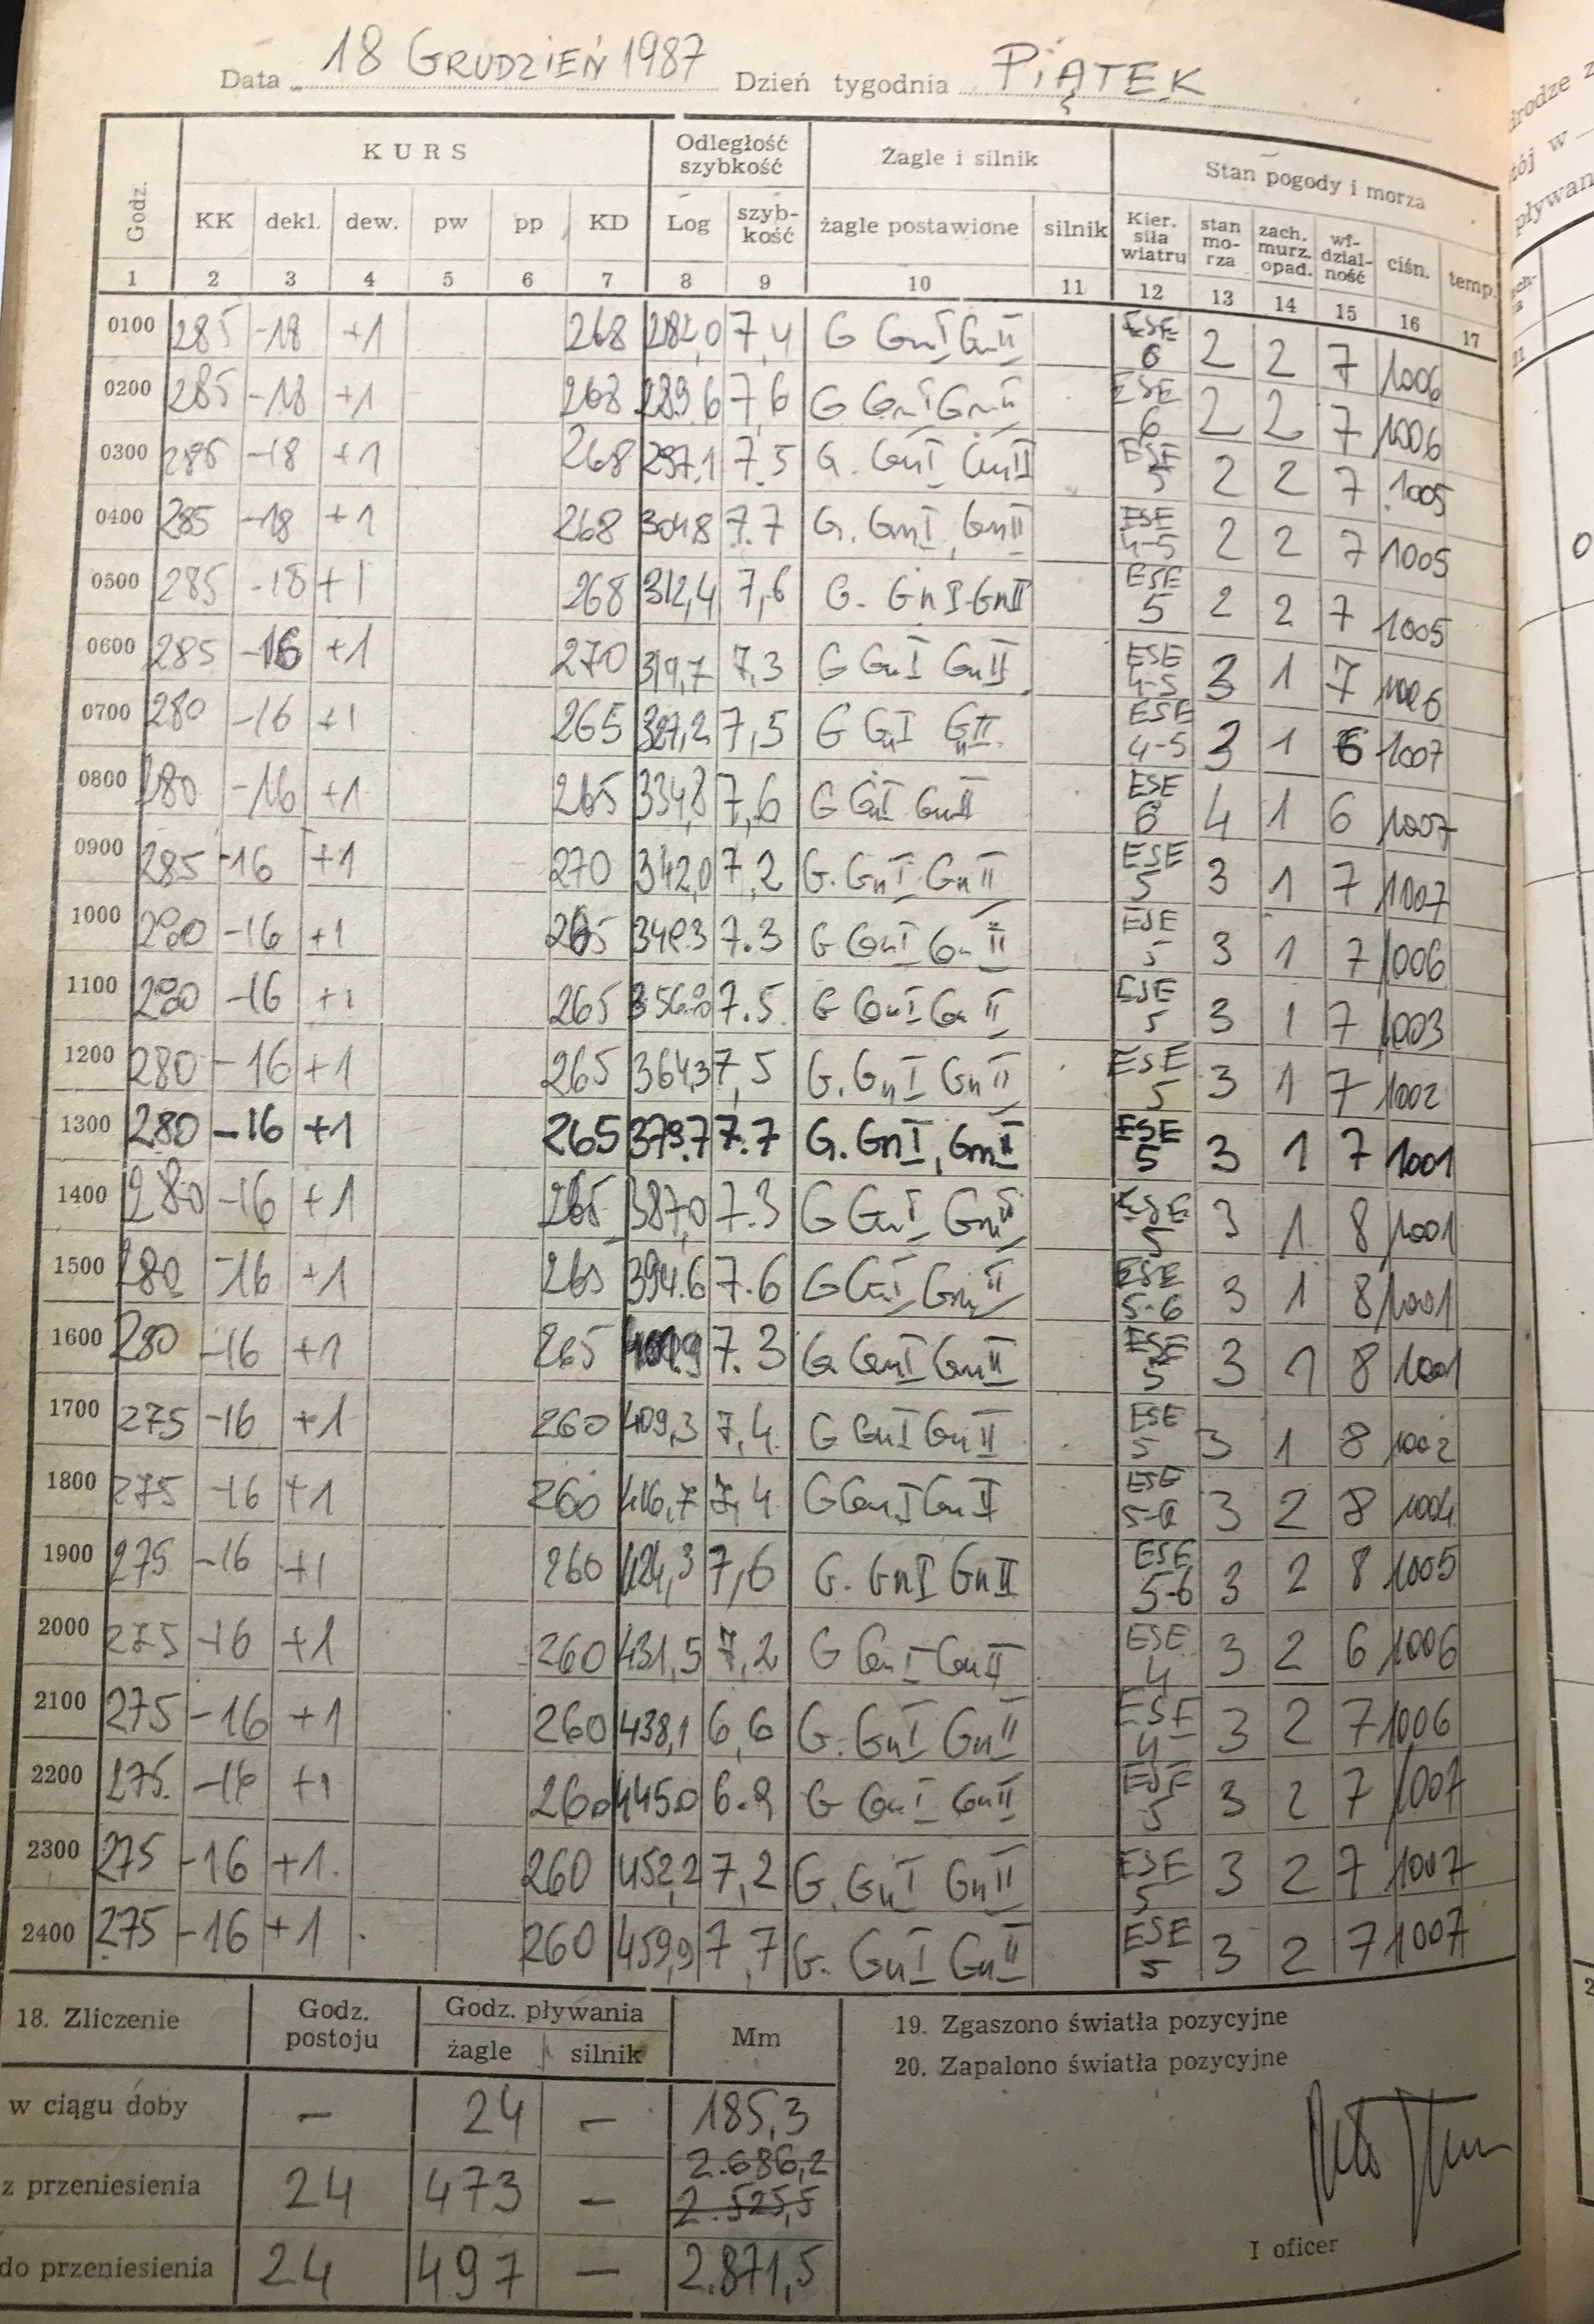 Data 18 GRUDZIEŃ 1987 Dzień tygodnia PIĄTEK
Godz. KURS Odległość szybkość Żagle i silnik Stan pogody i morza
KK dekl. dew. pw pp KD Log szyb-kość żagle postawione silnik Kier. siła wiatru stan mo-rza zach. murz. opad. wi-dzial-ność ciśn. temp.
1 2 3 4 5 6 7 8 9 10 11 12 13 14 15 16 17
0100 285 -18 +1 268 282,0 7,4 G GnI GnII ESE 6 2 2 7 1006
0200 285 -18 +1 268 289,6 7,6 G GnI GnII ESE 6 2 2 7 1006
0300 285 -18 +1 268 297,1 7.5 G. GnI GnII ESE 5 2 2 7 1005
0400 285 -18 +1 268 304,8 7.7 G. GnI, GnII ESE 4-5 2 2 7 1005
0500 285 -18 +1 268 312,4 7,6 G. GnI-GnII ESE 5 2 2 7 1005
0600 285 -16 +1 270 319,7 7,3 G GnI GnII ESE 4-5 3 1 7 1006
0700 280 -16 +1 265 327,2 7,5 G GnI GnII ESE 4-5 3 1 6 1007
0800 280 -16 +1 265 334,8 7,6 G GnI GnII ESE 6 4 1 6 1007
0900 285 -16 +1 270 342,0 7,2 G. GnI GnII ESE 5 3 1 7 1007
1000 280 -16 +1 265 349.3 7.3 G GnI Gn II ESE 5 3 1 7 1006
1100 280 -16 +1 265 356.8 7.5 G GnI Gn II ESE 5 3 1 7 1003
1200 280 -16 +1 265 364,3 7,5 G. GnI GnII ESE 5 3 1 7 1002
1300 280 -16 +1 265 379.7 7.7 G. GnI, GnII ESE 5 3 1 7 1001
1400 280 -16 +1 265 387,0 7.3 G GnI GnII ESE 5 3 1 8 1001
1500 280 -16 +1 265 394.6 7.6 G GnI GnII ESE 5-6 3 1 8 1001
1600 280 -16 +1 265 401.9 7.3 G GnI GnII ESE 5 3 1 8 1001
1700 275 -16 +1 260 409,3 7,4 G GnI GnII ESE 5 3 1 8 1002
1800 275 -16 +1 260 416,7 7,4 G GnI GnII ESE 5-6 3 2 8 1004
1900 275 -16 +1 260 424,3 7,6 G. GnI GnII ESE 5-6 3 2 8 1005
2000 275 -16 +1 260 431,5 7,2 G GnI GnII ESE 4 3 2 6 1006
2100 275 -16 +1 260 438,1 6,6 G. GnI GnII ESE 4 3 2 7 1006
2200 275. -16 +1 260 445.0 6.9 G GnI GnII ESE 5 3 2 7 1007
2300 275 -16 +1. 260 452,2 7,2 G. GnI GnII ESE 5 3 2 7 1007
2400 275 -16 +1 260 459,9 7,7 G. GnI GnII ESE 5 3 2 7 1007
18. Zliczenie Godz. postoju Godz. pływania żagle silnik Mm
w ciągu doby – 24 – 185,3
z przeniesienia 24 473 – 2.686,2 2.525,5
do przeniesienia 24 497 – 2.871,5
19. Zgaszono światła pozycyjne
20. Zapalono światła pozycyjne
I oficer